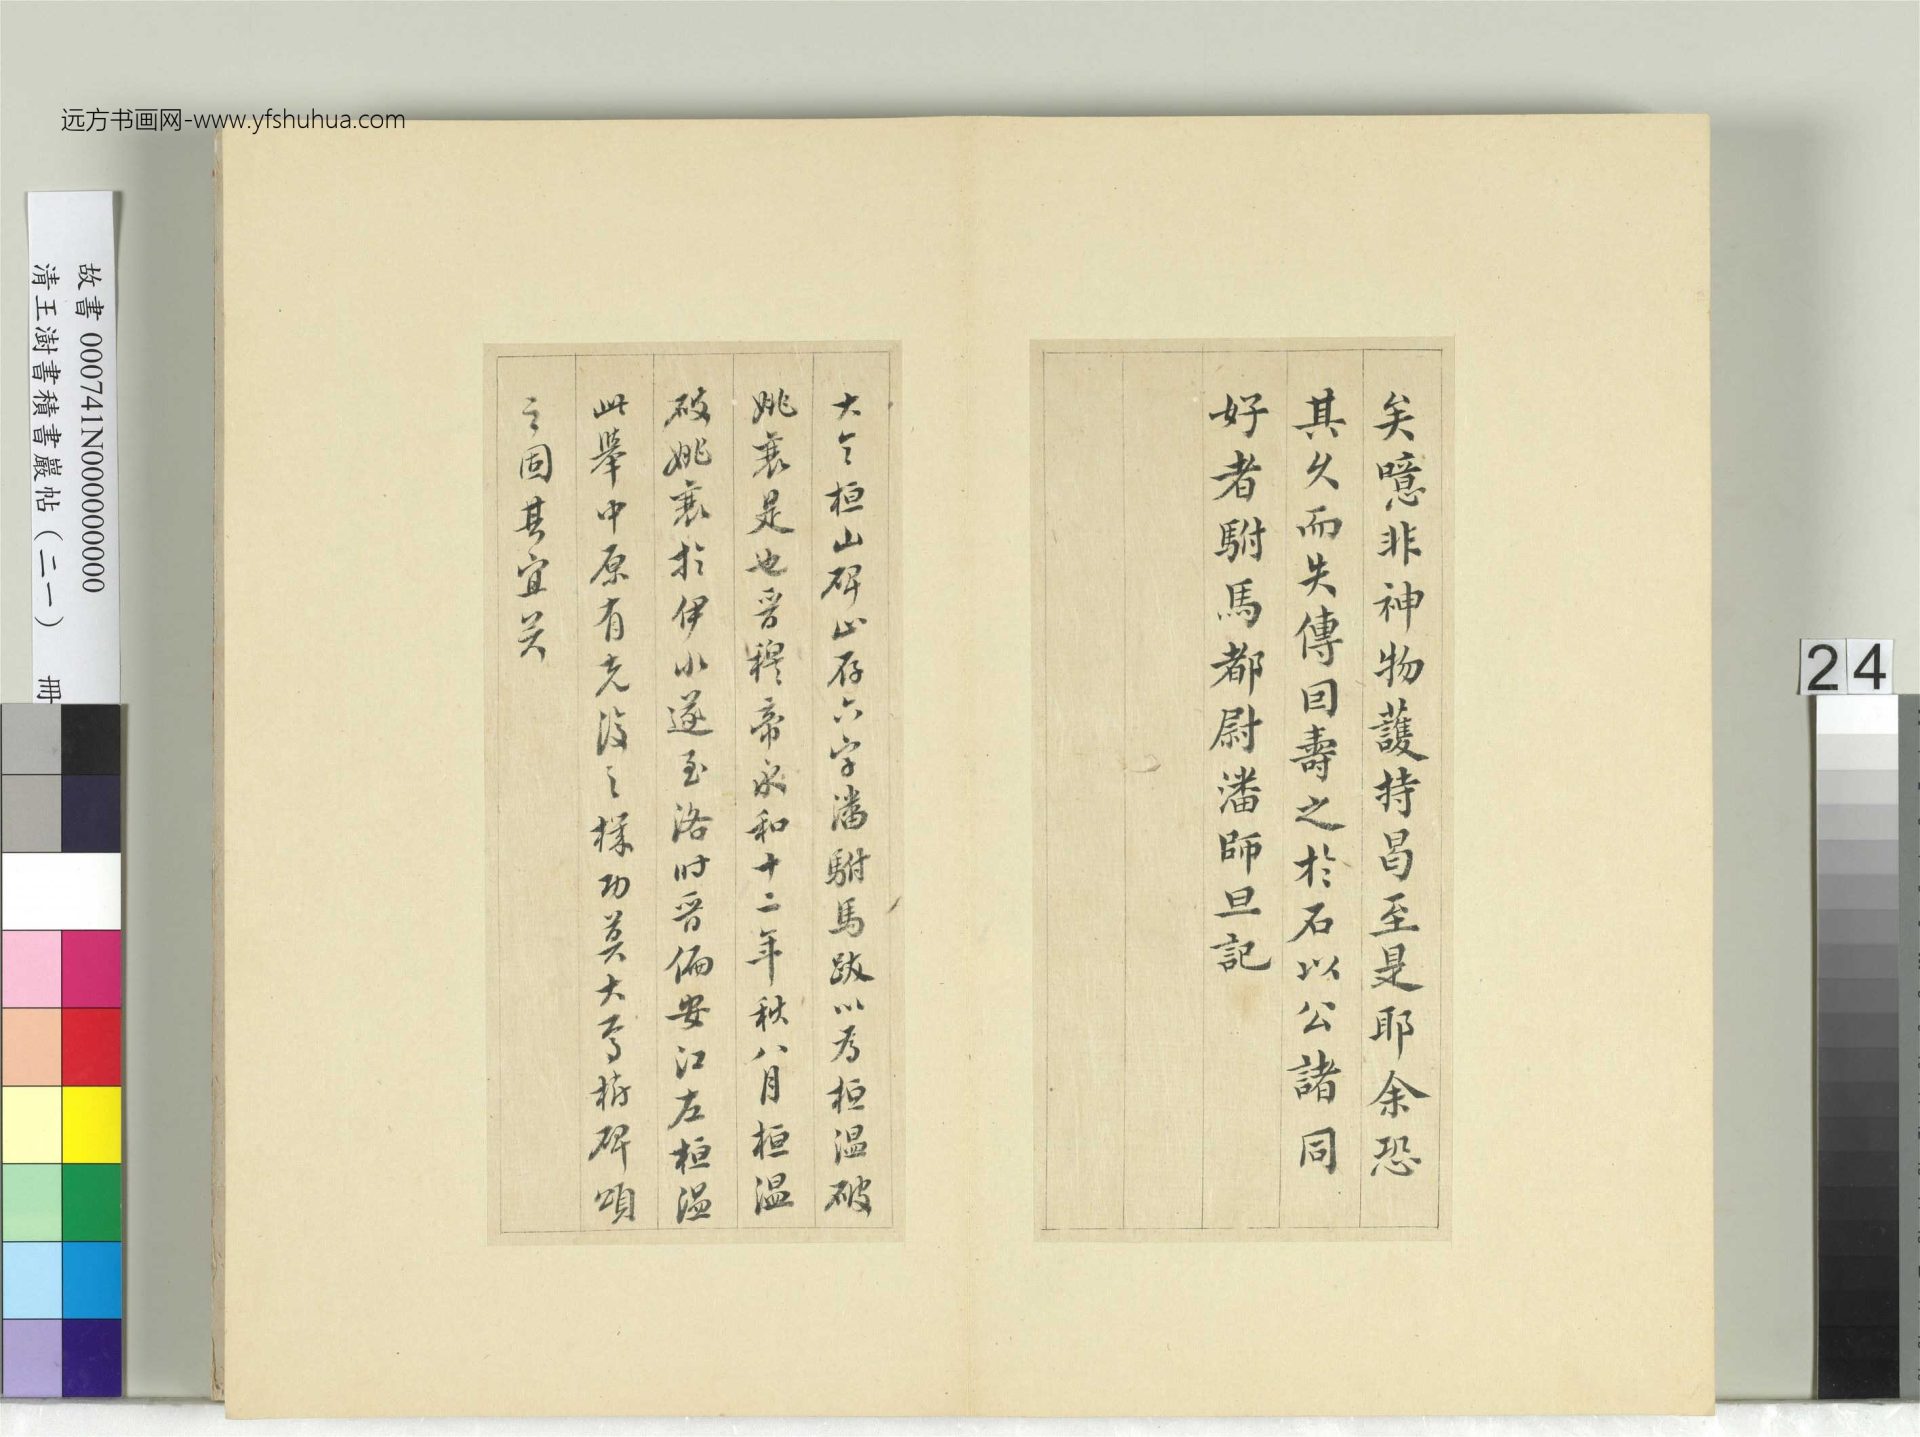 远方书画网-www.yfshuhua.com
故書 000741N000000000
清王澍書積書巖帖(二一) 冊
24
矣噫非神物護持曷至是耶余恐
其久而失傳因壽之於石以公諸同
好者駙馬都尉潘師旦記
大令桓山碑止存六字潘駙馬跋以為桓温破
姚襄是也晉穆帝永和十二年秋八月桓温
破姚襄於伊水遂至洛時晉偏安江左桓温
此舉中原有克復之機功莫大焉樹碑頌
之固其宜矣